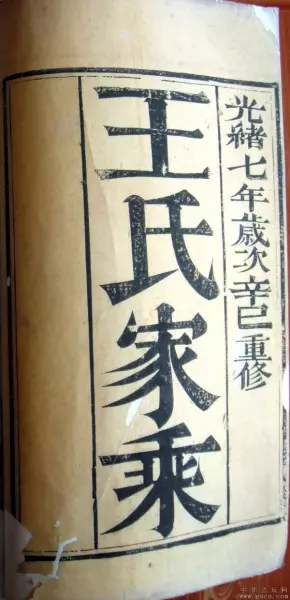 光緒七年歲次辛巳重修
王氏家乘